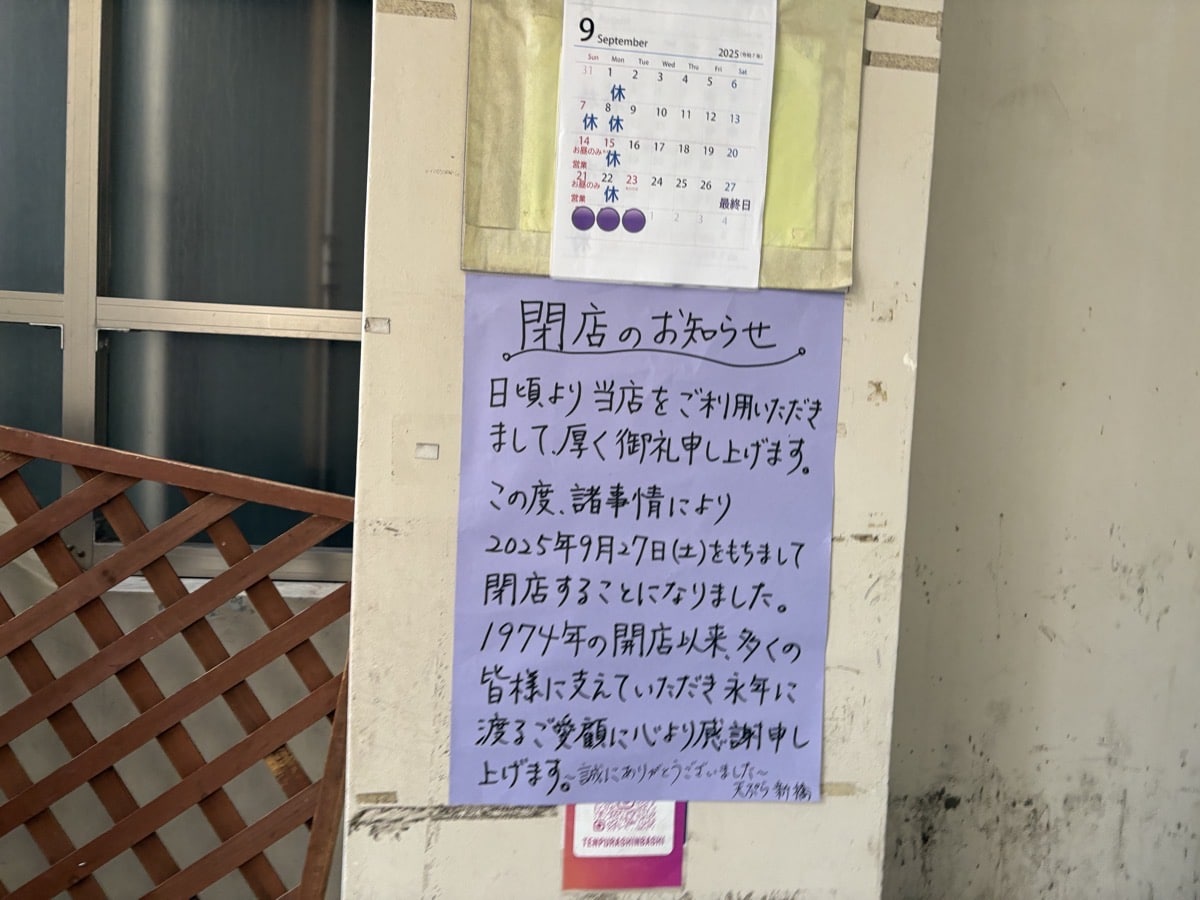 9 September 2025(令和7年)
Sun Mon Tue Wed Thu Fri Sat
31 1 2 3 4 5 6
休
7 8 9 10 11 12 13
休 休
14 15 16 17 18 19 20
お昼のみ
営業
休
21 22 23 24 25 26 27
お昼のみ
営業
休
最終日
1 2 3 4
閉店のお知らせ
日頃より当店をご利用いただき
まして、厚く御礼申し上げます。
この度、諸事情により
2025年9月27日(土)をもちまして
閉店することになりました。
1974年の開店以来、多くの
皆様に支えていただき永年に
渡るご愛顧に心より感謝申し
上げます。~誠にありがとうございました~
天ぷら新橋
TENPURASHINBASHI